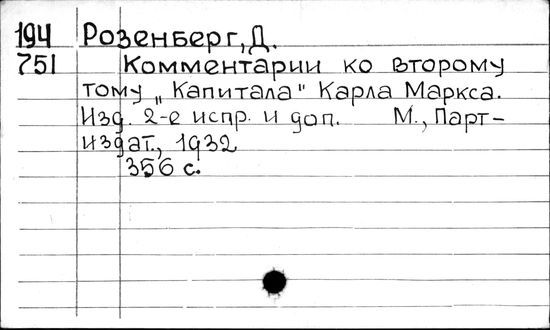 194 Розенберг, Д.
751 Комментарии ко второму
тому „Капитала" Карла Маркса.
Изд. 2-е испр. и доп. М., Парт-
издат., 1932
356 с.